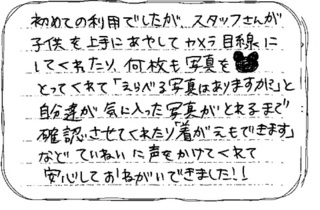 初めての利用でしたが、スタッフさんが
子供を上手にあやしてカメラ目線に
してくれたり、何枚も写真を
とってくれて「えらべる写真はありますか?」と
自分達が気に入った写真がとれるまで
確認させてくれたり「着がえもできます」
などていねいに声をかけてくれて
安心しておねがいできました!!